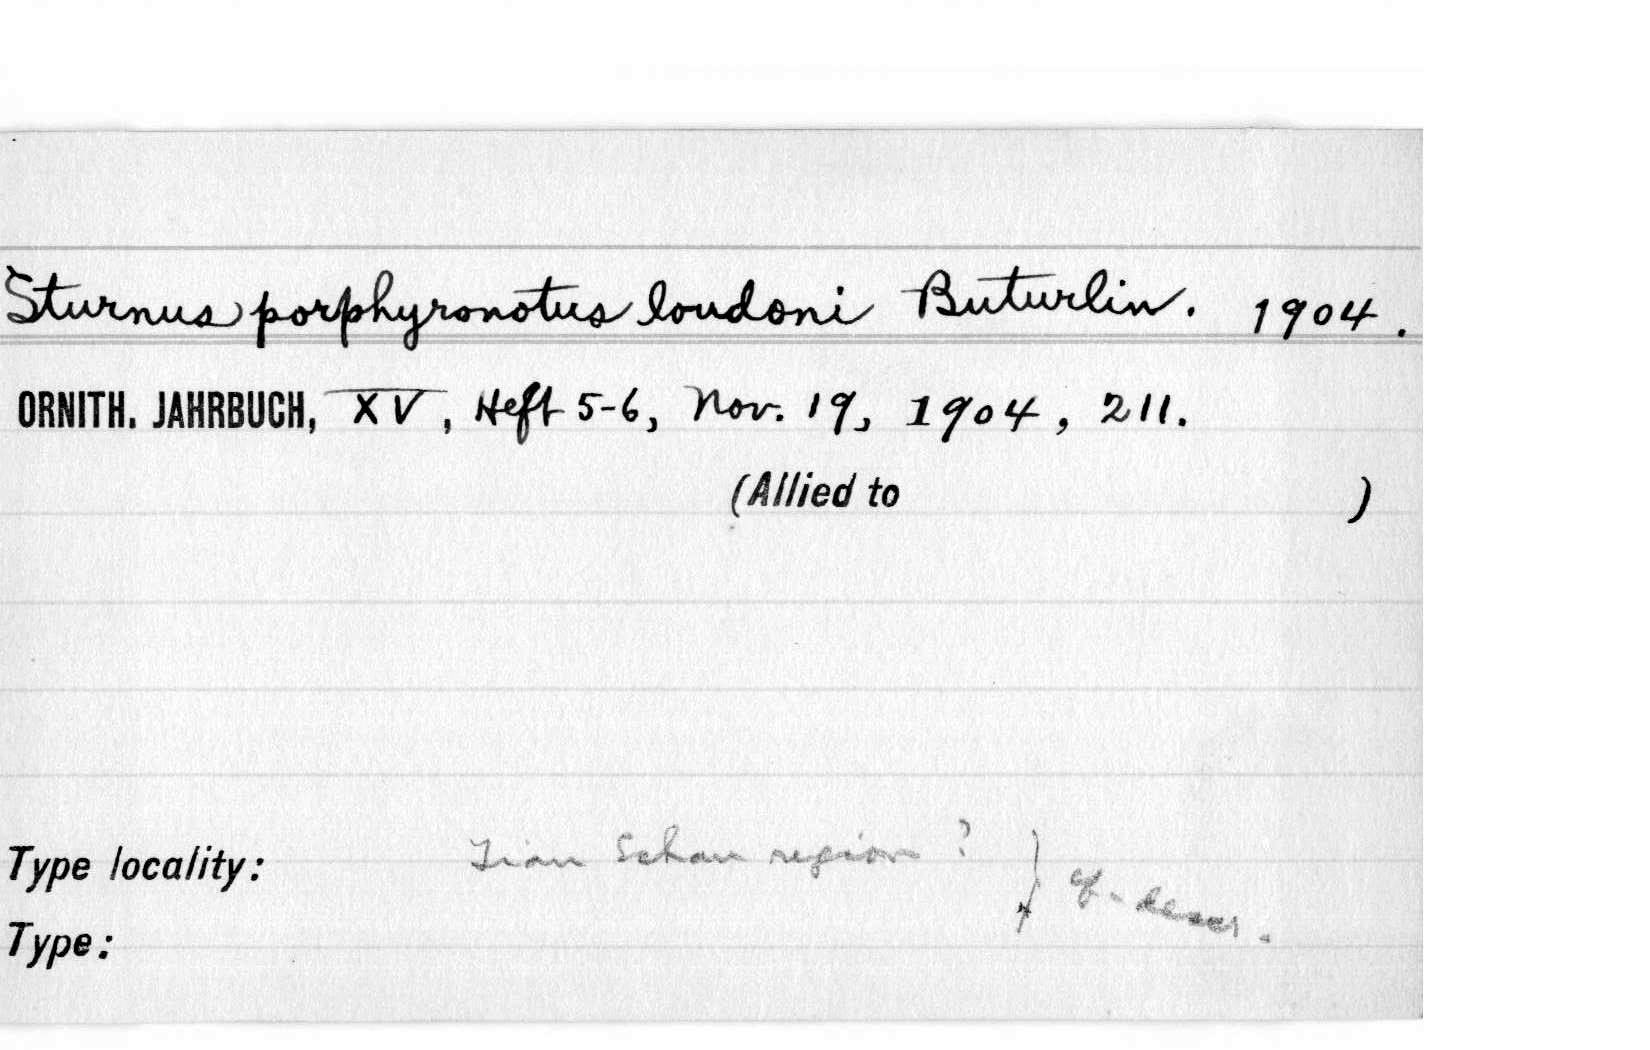 Sturnus porphyronotus loudoni Buturlin. 1904.
ORNITH. JAHRBUCH, XV, Heft 5-6, Nov. 19, 1904, 211.
(Allied to )
Type locality: Tian Schan region ? } cf. descr.
Type: